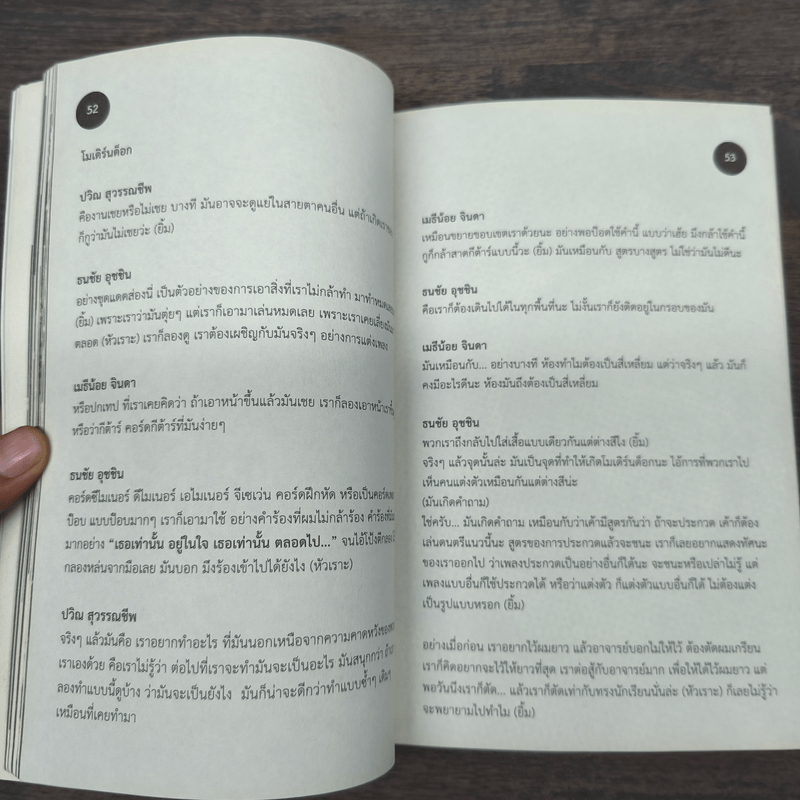 52
โมเดิร์นด็อก
ปวิณ สุวรรณชีพ
คืองานเชยหรือไม่เชย บางที มันอาจจะดูแย่ในสายตาคนอื่น แต่ถ้าเกิดเรา
ก็กูว่ามันไม่เชยว่ะ (ยิ้ม)
ธนชัย อุชชิน
อย่างชุดแดดส่องนี่ เป็นตัวอย่างของการเอาสิ่งที่เราไม่กล้าทำ มาทำหมดเลย
(ยิ้ม) เพราะเราว่ามันตุ่ยๆ แต่เราก็เอามาเล่นหมดเลย เพราะเราเคยเลี่ยงมัน
ตลอด (หัวเราะ) เราก็ลองดู เราต้องเผชิญกับมันจริงๆ อย่างการแต่งเพลง
เมธีน้อย จินดา
หรือปกเทป ที่เราเคยคิดว่า ถ้าเอาหน้าขึ้นแล้วมันเชย เราก็ลองเอาหน้าเรา
หรือว่ากีต้าร์ คอร์ดกีต้าร์ที่มันง่ายๆ
ธนชัย อุชชิน
คอร์ดซีไมเนอร์ ดีไมเนอร์ เอไมเนอร์ จีเซเว่น คอร์ดฝึกหัด หรือเป็นคอร์ด
ป๊อบ แบบป๊อบมากๆ เราก็เอามาใช้ อย่างคำร้องที่ผมไม่กล้าร้อง คำร้องที่
มากอย่าง “เธอเท่านั้น อยู่ในใจ เธอเท่านั้น ตลอดไป...” จนไอ้โป้งตีกลอง
กลองหล่นจากมือเลย มันบอก มึงร้องเข้าไปได้ยังไง (หัวเราะ)
ปวิณ สุวรรณชีพ
จริงๆ แล้วมันคือ เราอยากทำอะไร ที่มันนอกเหนือจากความคาดหวังของ
เราเองด้วย คือเราไม่รู้ว่า ต่อไปที่เราจะทำมันจะเป็นอะไร มันสนุกกว่า ถ้า
ลองทำแบบนี้ดูบ้าง ว่ามันจะเป็นยังไง มันก็น่าจะดีกว่าทำแบบซ้ำๆ เดิมๆ
เหมือนที่เคยทำมา
53
เมธีน้อย จินดา
เหมือนขยายขอบเขตเราด้วยนะ อย่างพอป๊อดใช้คำนี้ แบบว่าเฮ้ย มึงกล้าใช้คำนี้
กูก็กล้าสาดกีต้าร์แบบนี้วะ (ยิ้ม) มันเหมือนกับ สูตรบางสูตร ไม่ใช่ว่ามันไม่ดีนะ
ธนชัย อุชชิน
คือเราก็ต้องเดินไปได้ในทุกพื้นที่นะ ไม่งั้นเราก็ยังติดอยู่ในกรอบของมัน
เมธีน้อย จินดา
มันเหมือนกับ... อย่างบางที ห้องทำไมต้องเป็นสี่เหลี่ยม แต่ว่าจริงๆ แล้ว มันก็
คงมีอะไรดีนะ ห้องมันถึงต้องเป็นสี่เหลี่ยม
ธนชัย อุชชิน
พวกเราถึงกลับไปใส่เสื้อแบบเดียวกันแต่ต่างสีไง (ยิ้ม)
จริงๆ แล้วจุดนั้นล่ะ มันเป็นจุดที่ทำให้เกิดโมเดิร์นด็อกนะ ไอ้การที่พวกเราไป
เห็นคนแต่งตัวเหมือนกันแต่ต่างสีน่ะ
(มันเกิดคำถาม)
ใช่ครับ... มันเกิดคำถาม เหมือนกับว่าเค้ามีสูตรกันว่า ถ้าจะประกวด เค้าก็ต้อง
เล่นดนตรีแนวนี้นะ สูตรของการประกวดแล้วจะชนะ เราก็เลยอยากแสดงทัศนะ
ของเราออกไป ว่าเพลงประกวดเป็นอย่างอื่นก็ได้นะ จะชนะหรือเปล่าไม่รู้ แต่
เพลงแบบอื่นก็ใช้ประกวดได้ หรือว่าแต่งตัว ก็แต่งตัวแบบอื่นก็ได้ ไม่ต้องแต่ง
เป็นรูปแบบหรอก (ยิ้ม)
อย่างเมื่อก่อน เราอยากไว้ผมยาว แล้วอาจารย์บอกไม่ให้ไว้ ต้องตัดผมเกรียน
เราก็คิดอยากจะไว้ให้ยาวที่สุด เราต่อสู้กับอาจารย์มาก เพื่อให้ได้ไว้ผมยาว แต่
พอวันนึงเราก็ตัด... แล้วเราก็ตัดเท่ากับทรงนักเรียนนั่นล่ะ (หัวเราะ) ก็เลยไม่รู้ว่า
จะพยายามไปทำไม (ยิ้ม)